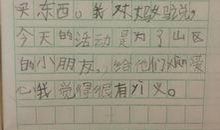 买东西。我对妈妈说。
今天的活动是为了山区
的小朋友。给他们献爱
心我觉得很有意义。